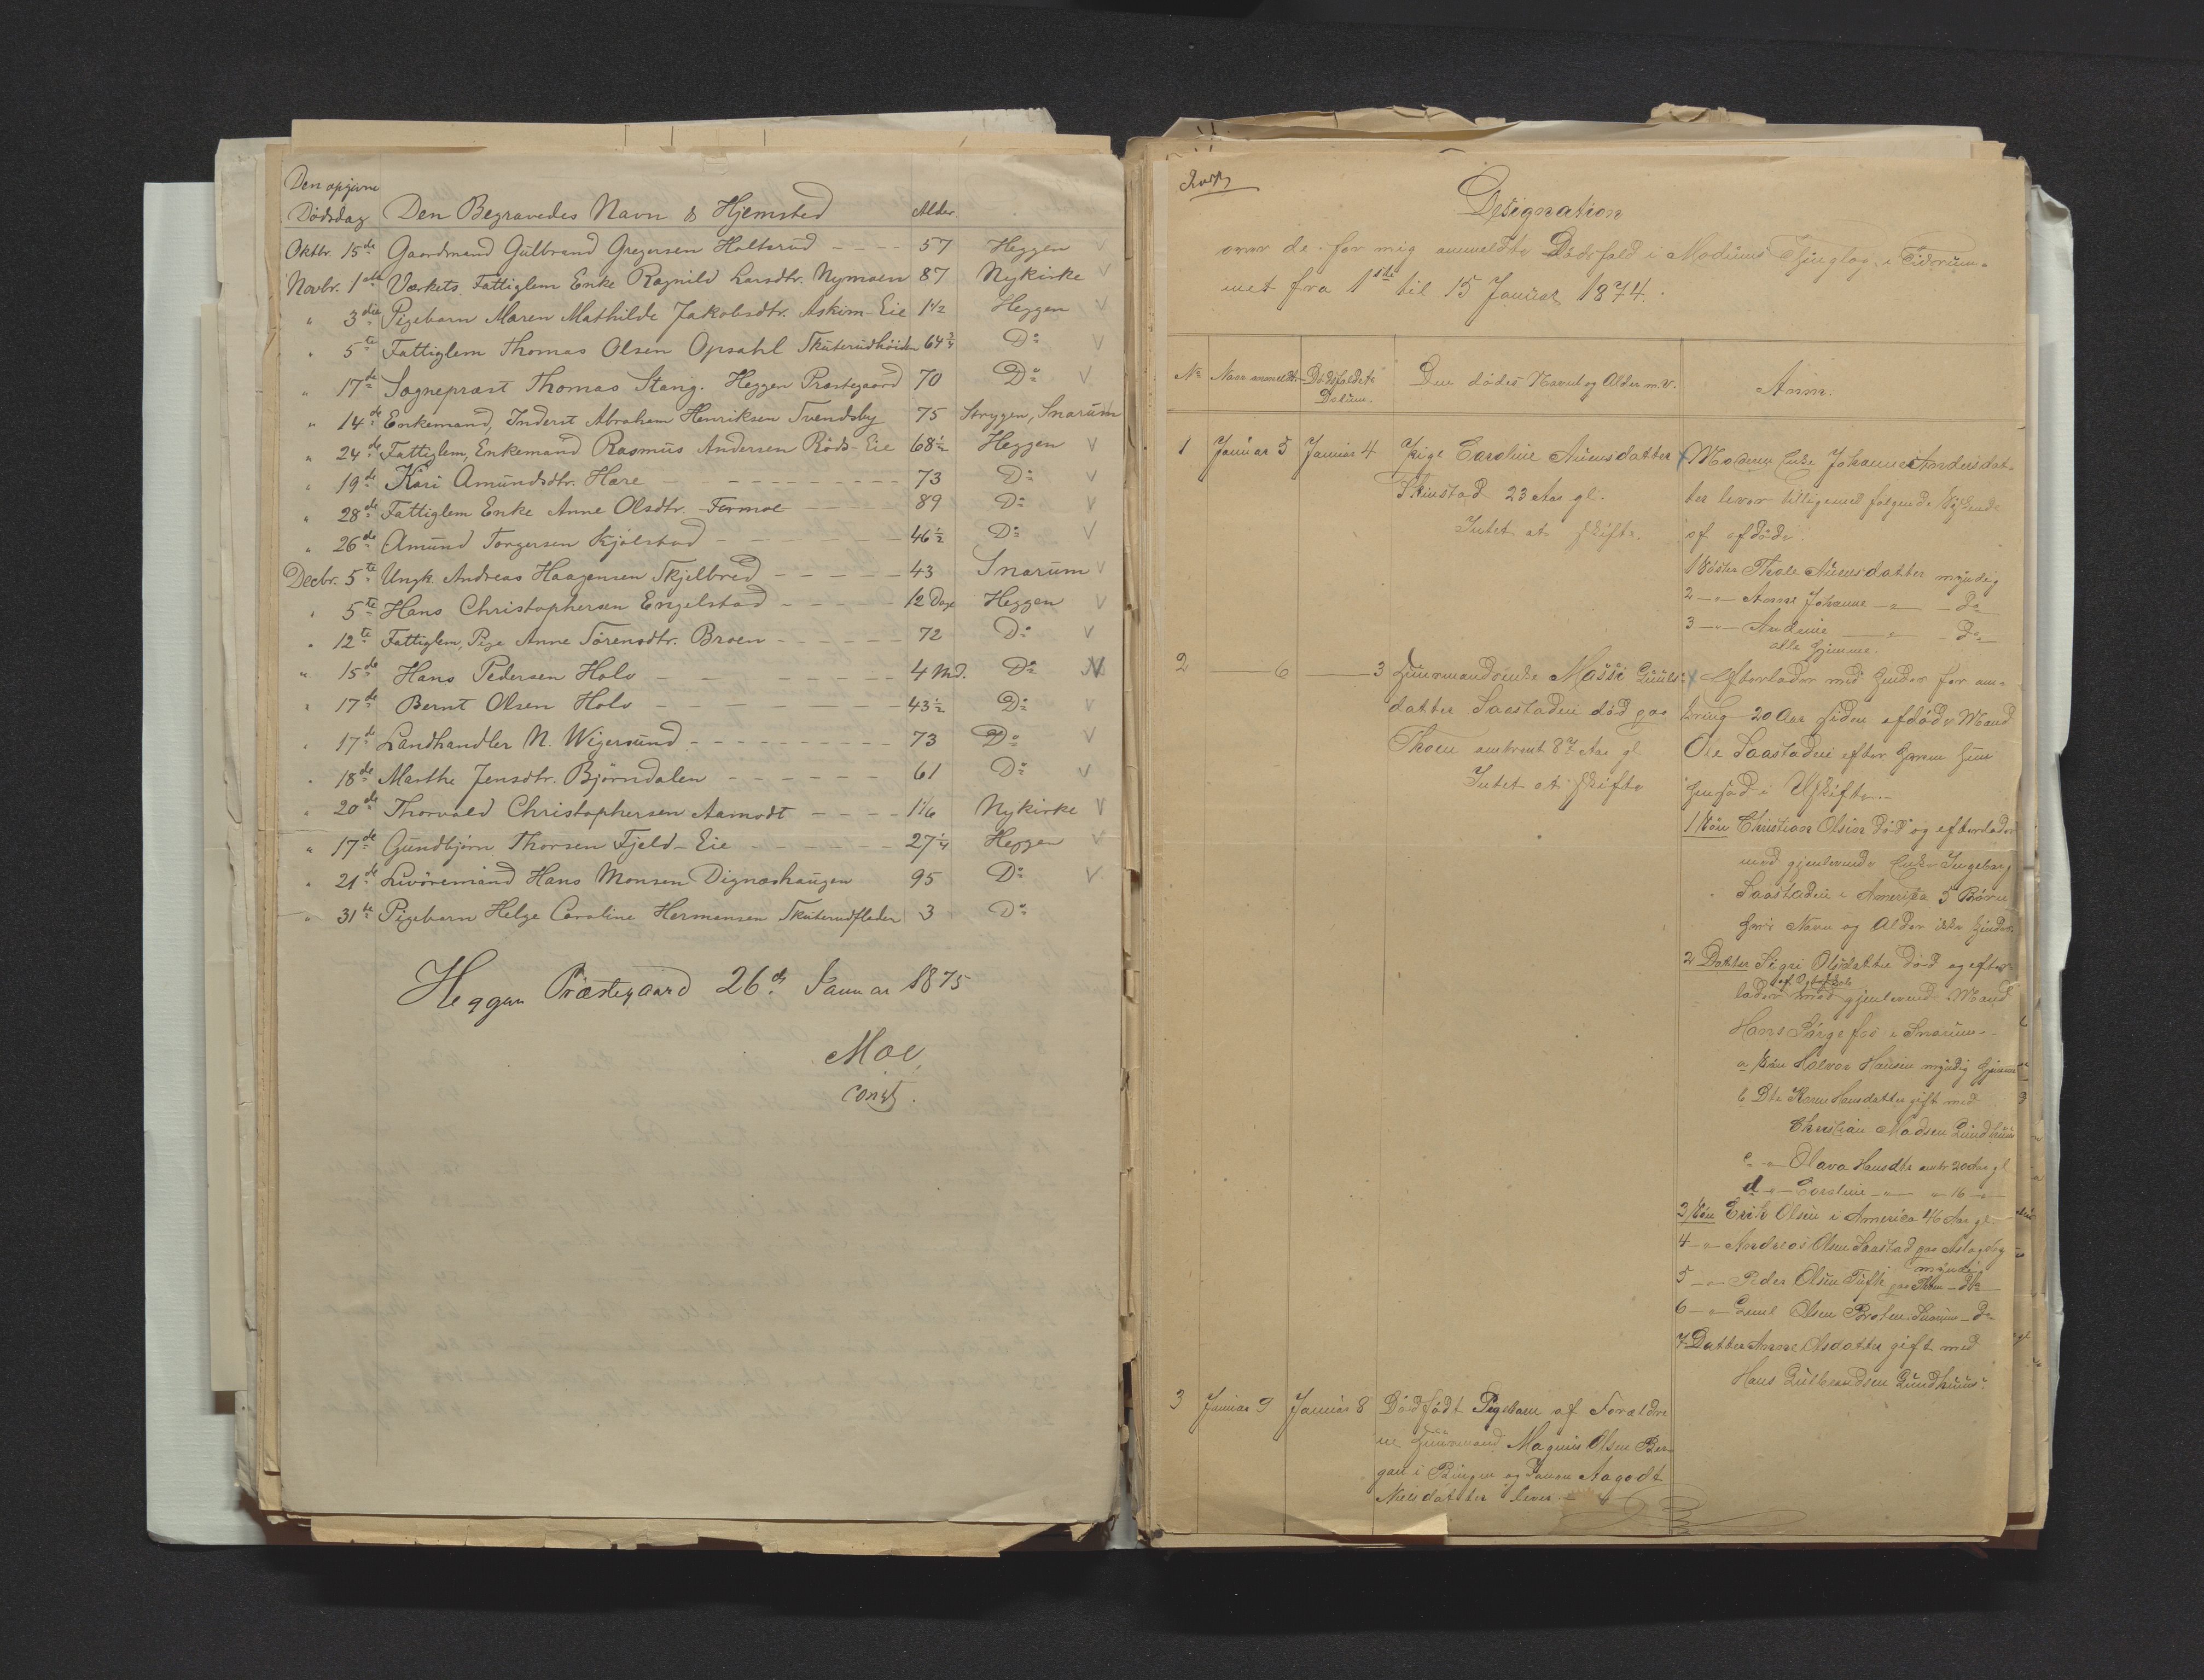 Den opgivne
Dödsdag Den Begravedes Navn & Hjemsted Alder
Oktbr. 15de Gaardmand Gulbrand Gregersen Holtsrud 57 Heggen
Novbr. 1ste Værkets Fattiglem Enke Ragnild Larsdtr. Nymoen 87 Nykirke
" 3die Pigebarn Maren Mathilde Jakobsdtr. Askim-Eie 1 1/2 Heggen
" 5te Fattiglem Thomas Olsen Opsahl Skuterudhöiden 64 3/4 Do
" 17de Sognepræst Thomas Stang. Heggen Præstegaard 70 Do
" 14de Enkemand, Inderst Abraham Henriksen Svendsby 75 Strygen, Snarum
" 24de Fattiglem, Enkemand Rasmus Andersen Röds-Eie 68 1/2 Heggen
" 19de Kari Amundsdtr. Hære 73 Do
" 28de Fattiglem Enke Anne Olsdtr. Formoe 89 Do
" 26de Amund Torgersen Kjölstad 46 1/2 Do
Decbr. 5te Ungk. Andreas Haagensen Skjelbred 43 Snarum
" 5te Hans Christophersen Engelstad 12 Dage Heggen
" 12te Fattiglem, Pige Anne Sörensdtr. Broen 72 Do
" 15de Hans Pedersen Holv 4 Md. Do
" 17de Bernt Olsen Holv 43 1/2 Do
" 17de Landhandler N. Wigersund 73 Do
" 18de Marthe Jensdtr. Björndalen 61 Do
" 20de Thorvald Christophersen Aamodt 1 1/6 Nykirke
" 17de Gundbjörn Thorsen Fjeld-Eie 27 1/4 Heggen
" 21de Livöremand Hans Monsen Dignæshaugen 95 Do
" 31te Pigebarn Helge Caroline Hermansen Skuterudfladen 3 Do
Heggen Præstegaard 26de Januar 1875
Moe,
const.
Designation
over de for mig anmeldte Dödsfald i Modums Thinglag i Tidsrum-
met fra 1ste til 15 Januar 1874.
No Naar anmeldt Dödsfaldets Datum. Den dödes Navn og Alder m.v. Anm.
1 Januar 5 Januar 4 Pige Caroline Aunesdatter
Skinstad 23 Aar gl.
Intet at skifte.
Moderen Enke Johanne Andersdat-
ter lever tilligemed følgende Sødskende
af afdöde
1 Söster Thale Aunesdatter myndig
2 -"- Anne Johanne -"- Do
3 -"- Andrine -"- Do
alle hjemme.
2 — 6 — 3 Huusmandsenke Massi Guuls-
datter Saastadeie död paa
Thoen omtrent 87 Aar gl
Intet at skifte
Efterlader med hendes for om-
kring 20 Aar siden afdöde Mand
Ole Saastadeie efter hvem hun
hensad i Uskifte.
1 Sön Christian Olsen död og efterlader
med gjenlevende Enke Ingeborg
Saastadeie i Amerika 5 Börn
hvis Navn og Alder ikke kjendes
2 Datter Sigri Olsdatter död og efter-
lader med gjenlevende Mand
Hans Sörgefos i Snarum
a Sön Halvor Hansen myndig hjemme
b Dtr Karen Hansdatter gift med
Christian Madsen Gundhuus
c -"- Olava Hansdtr omtr 20 Aar gl
d -"- Caroline -"- " 16 -"-
3 Sön Erik Olsen i America 46 Aar gl.
4 -"- Andreas Olsen Saastad paa Aslagsby
myndig
5 -"- Peder Olsen Tufte paa Thoen - Do
6 -"- Guul Olsen Braten Snarum - Do
7 Datter Anne Olsdatter gift med
Hans Gulbrandsen Gundhuus.
3 Januar 9 Januar 8 Dödfødt Pigebarn af Forældre
ne Huusmand Magnus Olsen Ber-
gan i Bingen og Konen Aagodt
Nielsdatter lever.